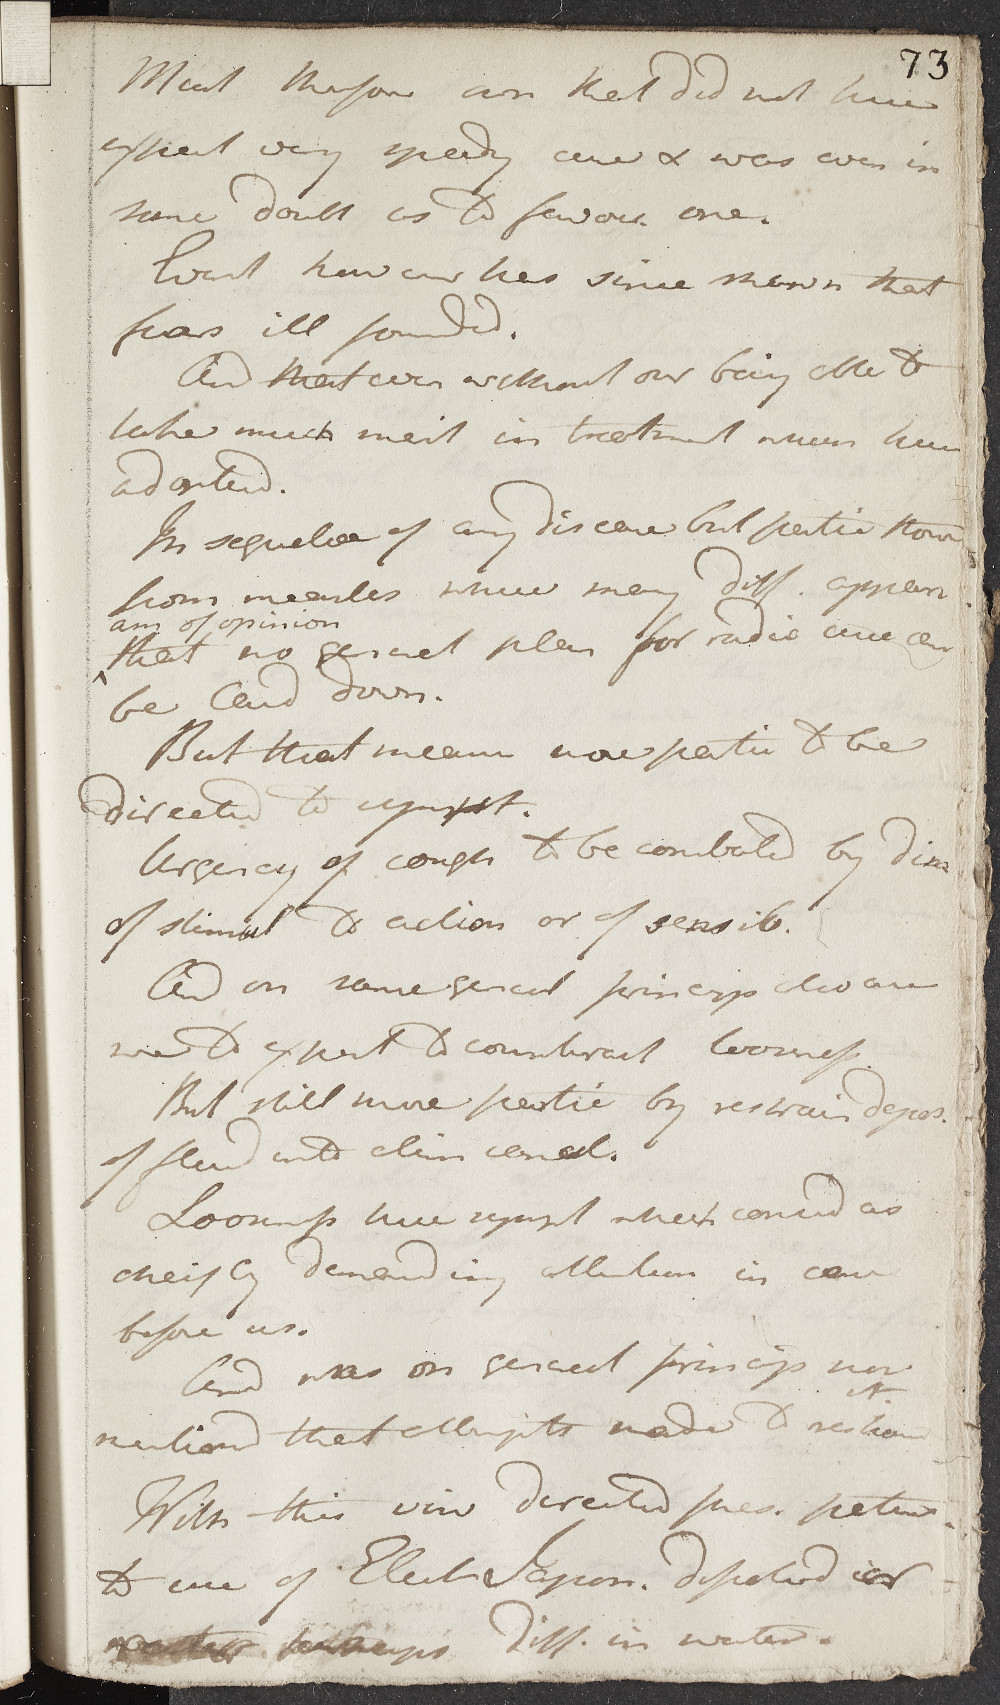 73
Must therefore own that did not here
expect very speedy cure & was even in
some doubt as to favour. one.
Event however has since shown that
fears ill founded.
And that even without our being able to
take much merit in treatment when here
adopted.
In sequelae of any disease but partic those
from measles where many diff. appear.
am of opinion
that no general plan for radic cure can
be laid down.
But that means more partic to be
directed to sympt.
Urgency of cough to be combated by dimin
of stimul to action or of sensib.
And on same general princip also are
we to expect to counteract looseness.
But still more partic by restrain depos.
of fluid into alim canal.
Looseness here sympt which consid as
cheifly demanding attention in case
before us.
And was on general princip now
mentiond that attempts made to restrain
it
With this view directed pres. patient.
to use of Elect Japon. diff. in water.